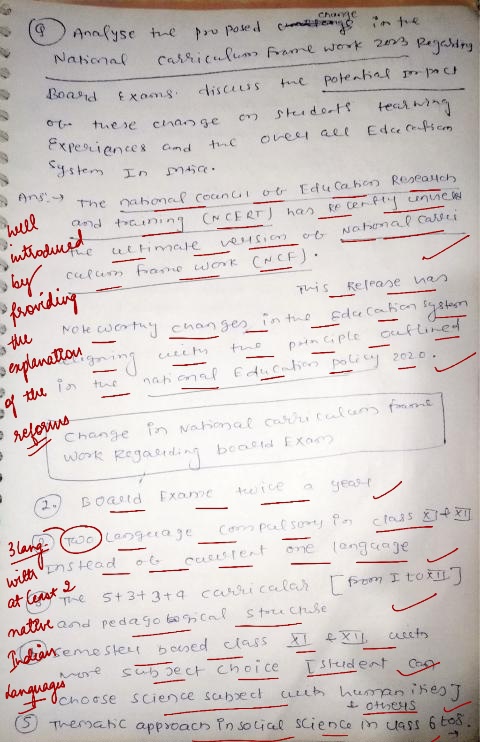 Q Analyse the proposed change in the
National carriculum Frame work 2023 Regarding
Board Exams. discuss the potential impact
of these change on students learning
Experiences and the over all Education
System In India.
Ans:→ The national council of Education Research
and training (NCERT) has recently
the ultimate version of National carri
culum frame work (NCF).
This Release has
Note worthy changes in the Education System
aligning with the principle outlined
in the national Education policy 2020.
well
introduced
by
providing
the
explanation
of the
reforms
Change in National carriculum frame
work Regarding board Exam
2. Board Exame twice a year
Two Language compulsory in class XI & XII
Instead of current one language
3 lang.
with
at least 2
native
Indian
Languages
The 5+3+3+4 carricular [from I to XII]
and pedagogical structure
semester based class XI & XII with
more subject choice [student can
choose science subject with humanities]
& others
5 Thematic approach in social science in class 6 to 8.